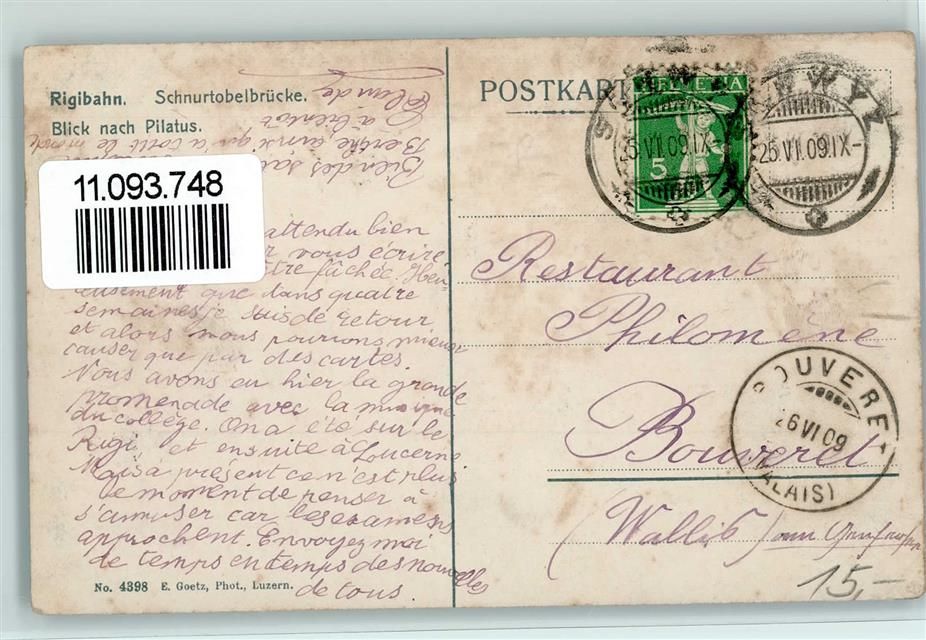 Rigibahn. Schnurtobelbrücke.
Blick nach Pilatus.
11.093.748
attendu bien
vous écrire.
être fâchée. Heu-
reusement que dans quatre
semaines je suis de retour
et alors nous pourrons mieux
causer que par des cartes.
Nous avons eu hier la grande
promenade avec la musique
du collège. On a été sur le
Rigi et ensuite à Lucerne
Mais à présent ce n'est plus
le moment de penser à
s'amuser car les examens
approchent. Envoyez moi
de temps en temps des nouvelles
de tous.
Bien des
Berthe ainsi qu'à tout le monde
à bientôt
No. 4398 E. Goetz, Phot., Luzern.
POSTKARTE
HELVETIA
5
SCHWYZ
25.VI.09.IX-
SCHWYZ
25.VI.09.IX-
Restaurant
Philomène
Bouveret
(Wallis) am Genfersee
BOUVERET
26 VI 09
(VALAIS)
15,-